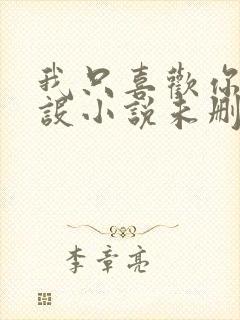 我只喜歡你
設小說未刪
李章亮